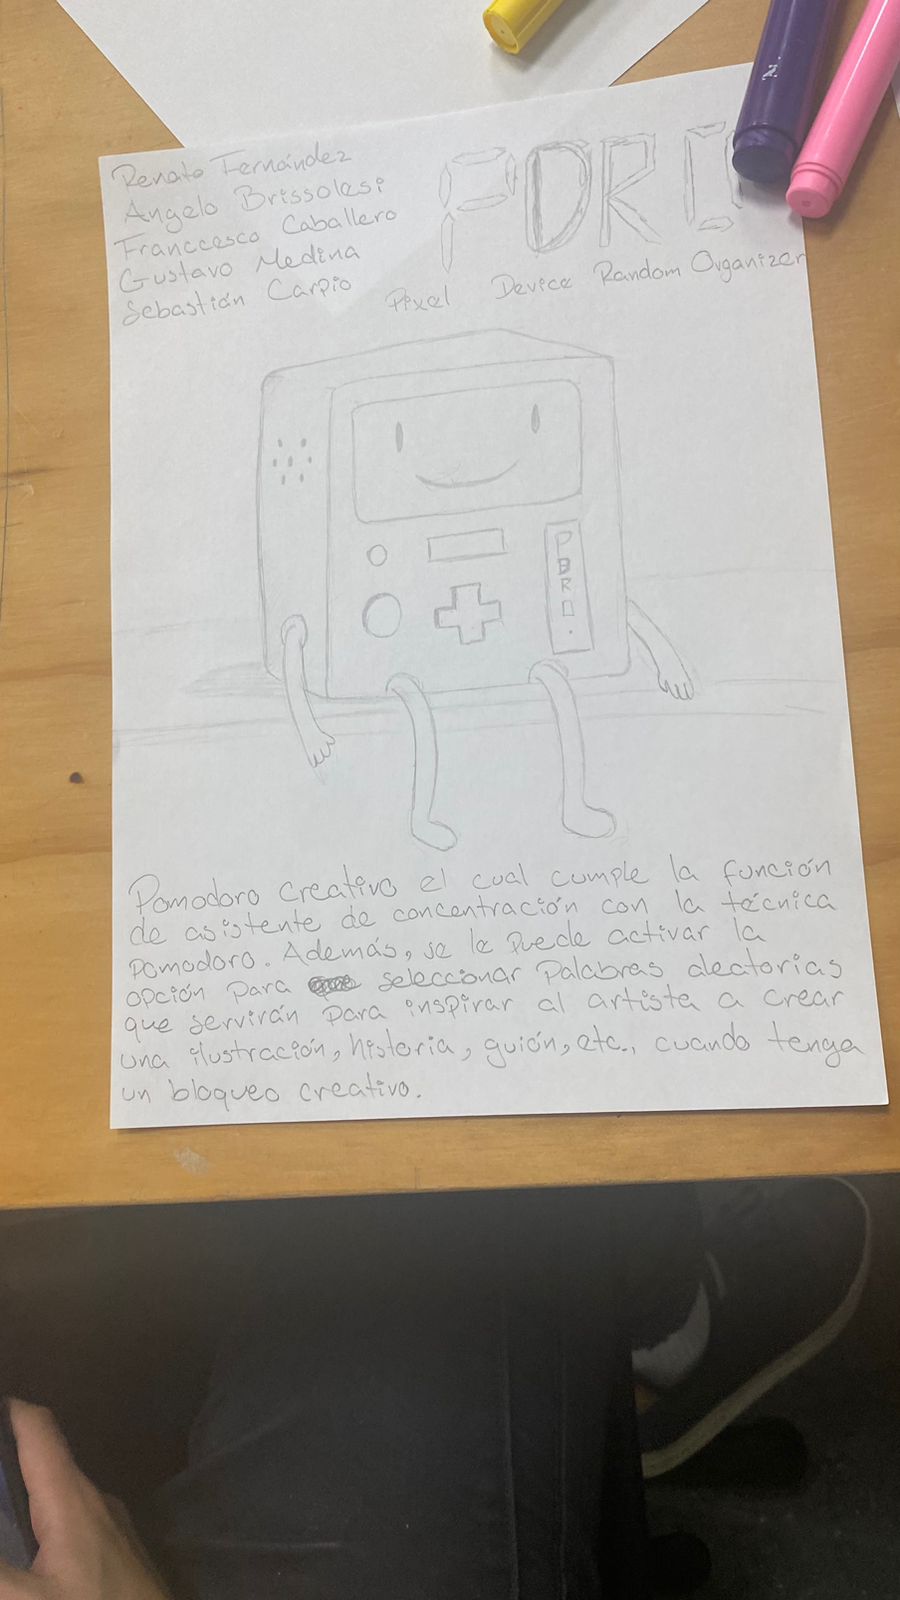 Renato Fernández
Angelo Brissolesi
Franccesco Caballero
Gustavo Medina
Sebastián Carpio
PDRO
Pixel Device Random Organizer
PBRO.
Pomodoro creativo el cual cumple la función
de asistente de concentración con la técnica
pomodoro. Además, se le puede activar la
opción para seleccionar palabras alectorias
que servirán para inspirar al artista a crear
una ilustración, historia, guión, etc., cuando tenga
un bloqueo creativo.